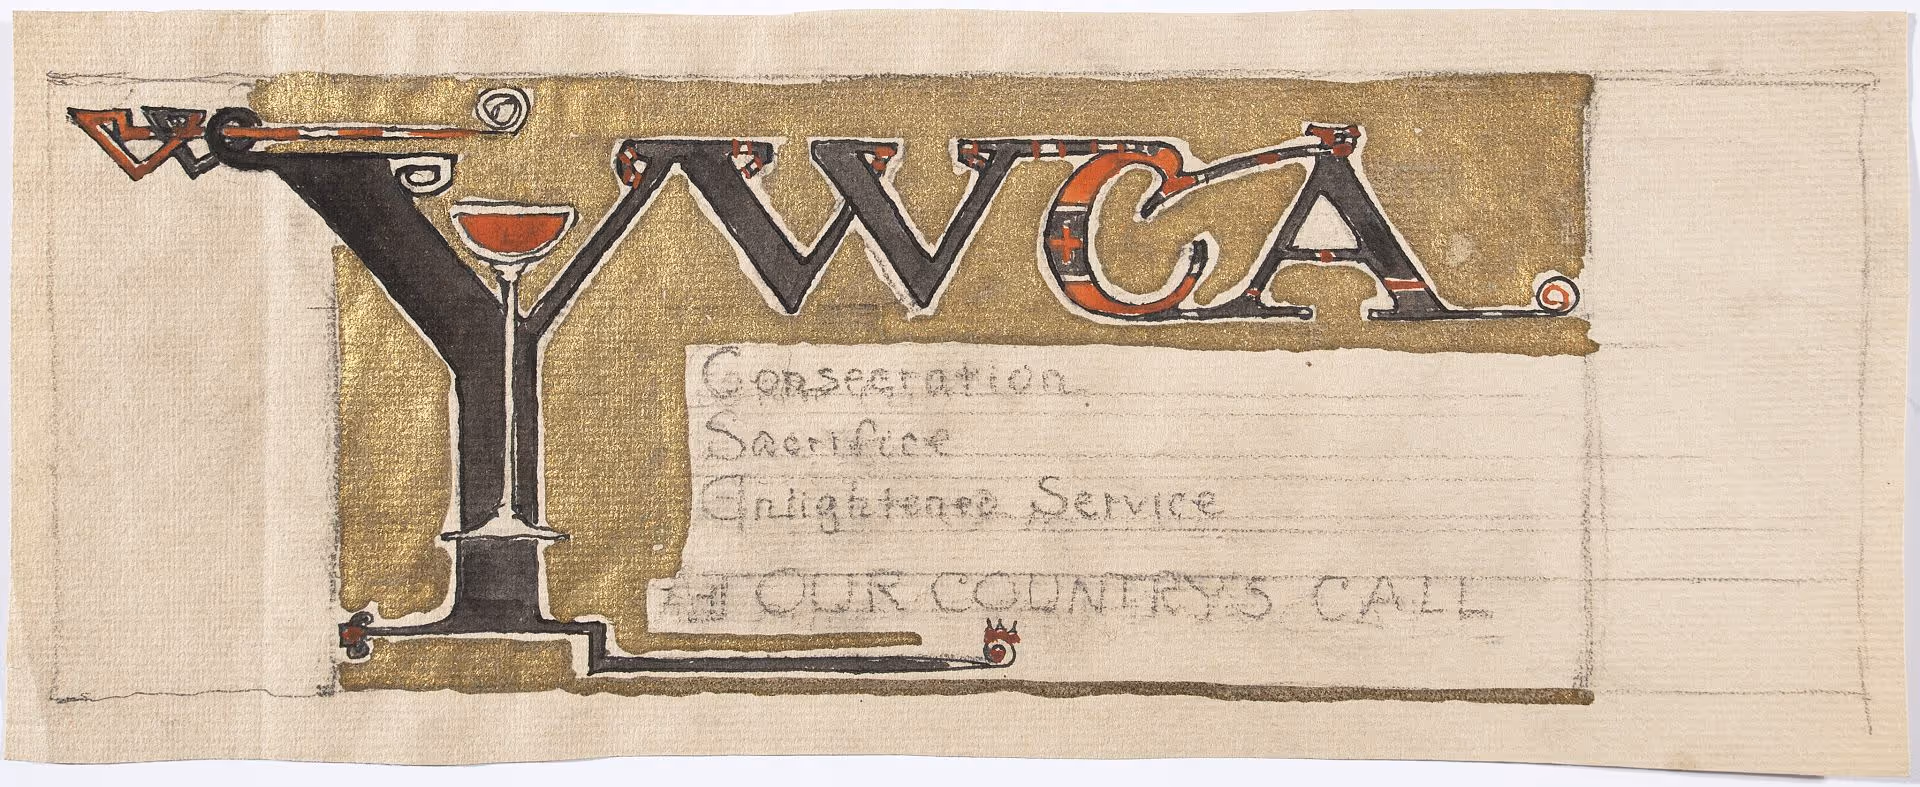 YWCA
Consecration
Sacrifice
Enlightened Service
At OUR COUNTRYS CALL